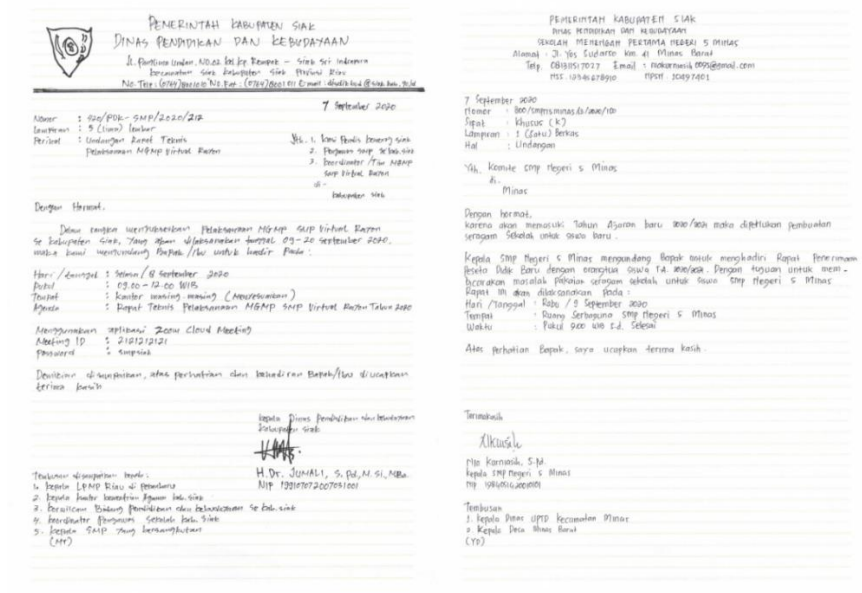 PEMERINTAH KABUPATEN SIAK
DINAS PENDIDIKAN DAN KEBUDAYAAN
Jl. Panglima Undan, No.02 kel. kp. Rempak - Siak Sri Indrapura
kecamatan Siak kabupaten Siak Provinsi Riau
7 September 2020
Nomor : 420/PDK-SMP/2020/212
Lampiran : 5 (lima) lembar
Perihal : Undangan Rapat Teknis
Pelaksanaan MGMP Virtual Rayon
Yth. 1.
2. Pengawas SMP se kab. siak
3. koordinator /Tim MGMP
SMP Virtual Rayon
di -
kabupaten siak
Dengan Hormat,
Dalam rangka Pelaksanaan MGMP SMP Virtual Rayon
se kabupaten Siak, Yang akan dilaksanakan tanggal 09-20 September 2020,
maka kami mengundang Bapak /Ibu untuk hadir Pada :
Hari / tanggal : Selasa / 8 September 2020
Pukul : 09.00 - 12.00 WIB
Tempat : Kantor masing-masing (Menyesuaikan)
Agenda : Rapat Teknis Pelaksanaan MGMP SMP Virtual Rayon Tahun 2020
Menggunakan aplikasi Zoom Cloud Meeting
Meeting ID : 2121212121
Password : smpsiak
Demikian disampaikan, atas perhatian dan kehadiran Bapak/Ibu diucapkan
terima kasih
kepala Dinas Pendidikan dan kebudayaan
kabupaten siak
H. Dr. JUMALI, S. Pd, M. Si, MBa
NIP 199107072007031001
Tembusan disampaikan kepada :
1. kepala LPMP Riau di Pekanbaru
2. kepala kantor kementrian Agama kab. siak
3. Bidang Pendidikan dan kebudayaan se kab. siak
4. koordinator Pengawas Sekolah kab. Siak
5. kepala SMP Yang bersangkutan
(MT)
PEMERINTAH KABUPATEN SIAK
DINAS PENDIDIKAN DAN KEBUDAYAAN
SEKOLAH MENENGAH PERTAMA NEGERI 5 MINAS
Alamat : Jl. Yos Sudarso km. 41 Minas Barat
Telp. 081311517027 Email : niokarnasih0595@gmail.com
NSS : 12345678910 NPSN : 10497401
7 September 2020
Nomor : 800/smpn5minas.ds/2020/100
Sipat : Khusus (K)
Lampiran : 1 (Satu) Berkas
Hal : Undangan
Yth. Komite SMP Negeri 5 Minas
di -
Minas
Dengan hormat,
karena akan memasuki Tahun Ajaran baru 2020/2021 maka diperlukan pembuatan
seragam Sekolah untuk siswa baru.
Kepala SMP Negeri 5 Minas mengundang Bapak untuk menghadiri Rapat Penerimaan
Peseta Didik Baru dengan orangtua siswa T.A. 2020/2021. Dengan tujuan untuk mem-
bicarakan masalah pakaian seragam sekolah untuk siswa SMP Negeri 5 Minas
Rapat ini akan dilaksanakan pada :
Hari /Tanggal : Rabu / 9 September 2020
Tempat : Ruang Serbaguna SMP Negeri 5 Minas
Waktu : Pukul 9.00 WIB s.d. Selesai
Atas Perhatian Bapak, saya ucapkan terima kasih.
Terimakasih
Nio Karniasih, S.Pd.
Kepala SMP Negeri 5 Minas
Tembusan
1. Kepala Dinas UPTD Kecamatan Minas
2. Kepala Desa Minas Barat
(YD)